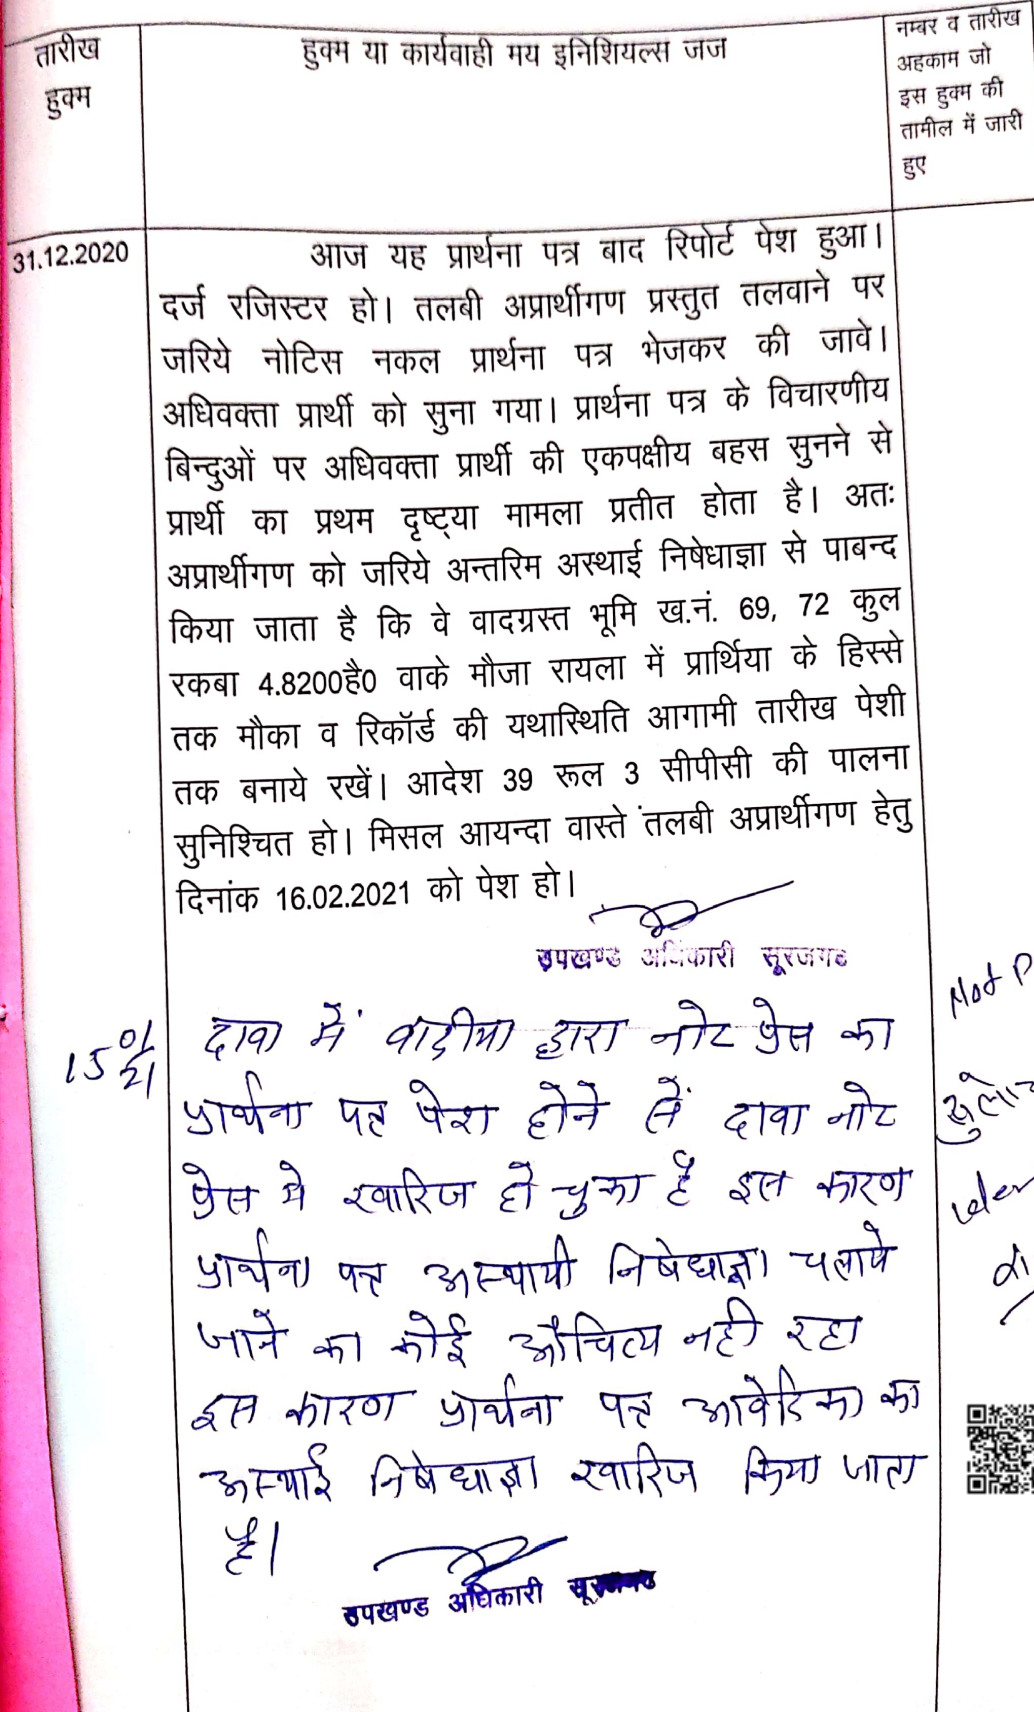 तारीख
हुक्म
हुक्म या कार्यवाही मय इनिशियल्स जज
नम्बर व तारीख
अहकाम जो
इस हुक्म की
तामील में जारी
हुए
31.12.2020
आज यह प्रार्थना पत्र बाद रिपोर्ट पेश हुआ।
दर्ज रजिस्टर हो। तलबी अप्रार्थीगण प्रस्तुत तलवाने पर
जरिये नोटिस नकल प्रार्थना पत्र भेजकर की जावे।
अधिवक्ता प्रार्थी को सुना गया। प्रार्थना पत्र के विचारणीय
बिन्दुओं पर अधिवक्ता प्रार्थी की एकपक्षीय बहस सुनने से
प्रार्थी का प्रथम दृष्ट्या मामला प्रतीत होता है। अतः
अप्रार्थीगण को जरिये अन्तरिम अस्थाई निषेधाज्ञा से पाबन्द
किया जाता है कि वे वादग्रस्त भूमि ख.नं. 69, 72 कुल
रकबा 4.8200है0 वाके मौजा रायला में प्रार्थिया के हिस्से
तक मौका व रिकॉर्ड की यथास्थिति आगामी तारीख पेशी
तक बनाये रखें। आदेश 39 रूल 3 सीपीसी की पालना
सुनिश्चित हो। मिसल आयन्दा वास्ते तलबी अप्रार्थीगण हेतु
दिनांक 16.02.2021 को पेश हो।
उपखण्ड अधिकारी सूरजगढ
15 01/21
दावा में वादीया द्वारा नोट प्रेस का
प्रार्थना पत्र पेश होने सें दावा नोट
प्रेस मे खारिज हो चुका है इस कारण
प्रार्थना पत्र अस्थायी निषेधाज्ञा चलाये
जाने का कोई औचित्य नही रहा
इस कारण प्रार्थना पत्र आवेदिका का
अस्थाई निषेधाज्ञा खारिज किया जाता
है।
उपखण्ड अधिकारी
Not P